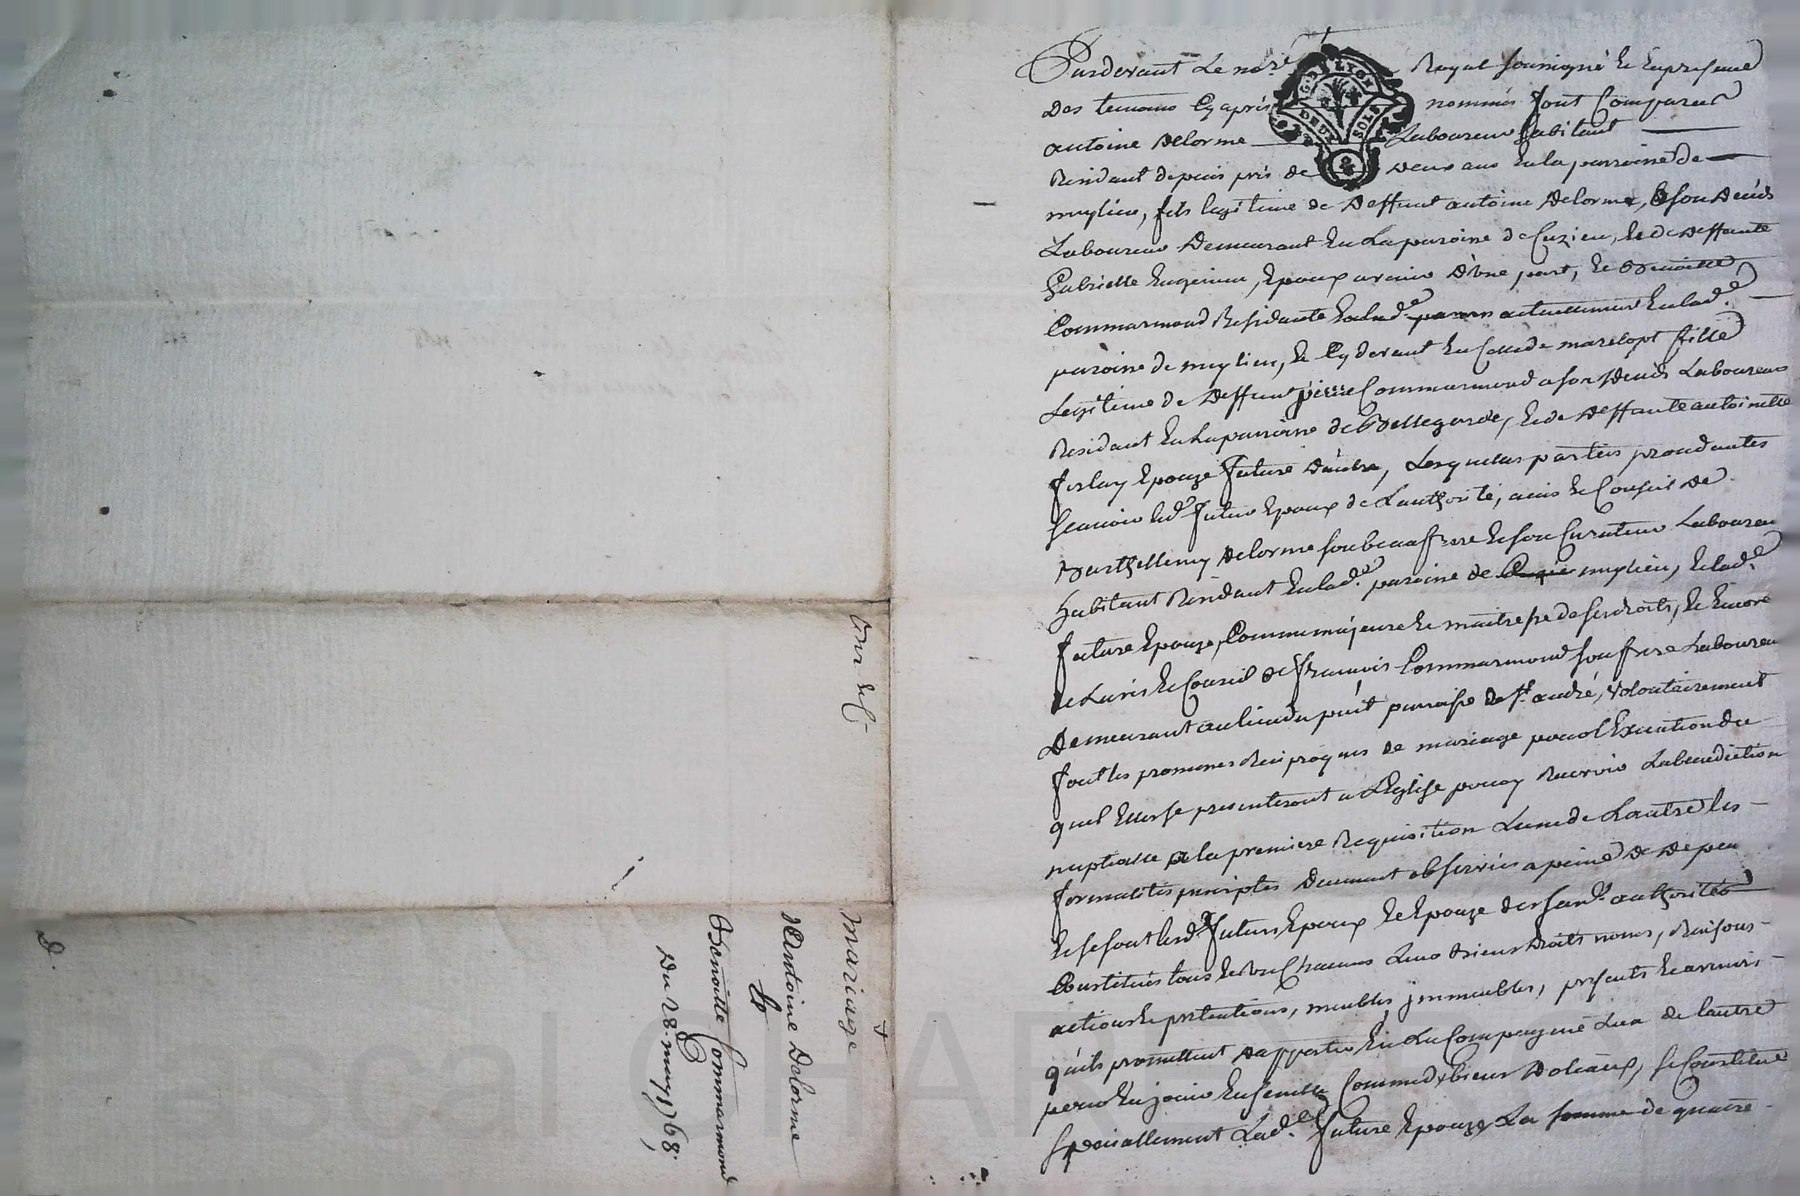 Pardevant Le no.re Royal soussigné Et En presence
des temoins Cy apres nommés sont Comparus
G. DE LYON
DEUX SOLS
antoine Delorme Laboureur habitant
Residant depuis près de deux ans En la parroisse de
meylieu, fils legitime de deffunt antoine Delorme, a son deces
Laboureur Demeurant En La paroisse de Cuzieu, Et de deffunte
Gabrielle Epoux avenir d'une part, Et Benoitte
Commarmond Residante actuellement En lad.e
paroisse de meylieu, Et Cy devant En Celle de fille
Legitime de deffunt pierre Commarmond a son deces Laboureur
Residant En La parroisse de Bellegarde, Et de deffunte antoinette
Epouze future d'autre, Lesquelles parties procedantes
scavoir led. futur Epoux de L'authorité, avis Et Conseil de
Barthellemy Delorme son beau frere Et son Curateur Laboureur
habitant Residant En lad.e paroisse de meylieu, Et lad.e
future Epouze, Comme majeure Et maitresse de ses droits, Et Encore
de L'avis Et Conseil de francois Commarmond son frere Laboureur
Demeurant au lieu du puit parroisse de S.t andré, volontairement
font les promesses Reciproques de mariage pour l'Execution du
quel Elles se presenteront a L'Eglise pour y Recevoir La benediction
nuptialle a la premiere Requisition L'une de L'autre les
formalités prescriptes Deument observées a peine de depens
Et se sont lesd. futurs Epoux Et Epouze authorités
Constitués tous Et Un Chacuns Leurs biens droits noms, Raisons
actions Et pretentions, meubles, jmmeubles, presents Et avenirs
qu'ils promettent d'apporter En La Compagnie L'un de l'autre
pour En jouir Ensemble Comme de biens Dotaux, se Constitue
speciallement Lad.e future Epouze La somme de quatre
mariage
Antoine Delorme
Et
Benoitte Commarmond
Du 28 may 1768